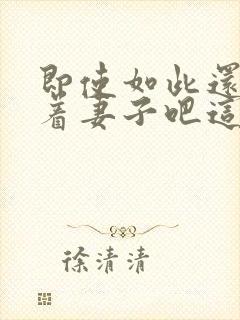 即使如此還
着妻子吧這
徐清清